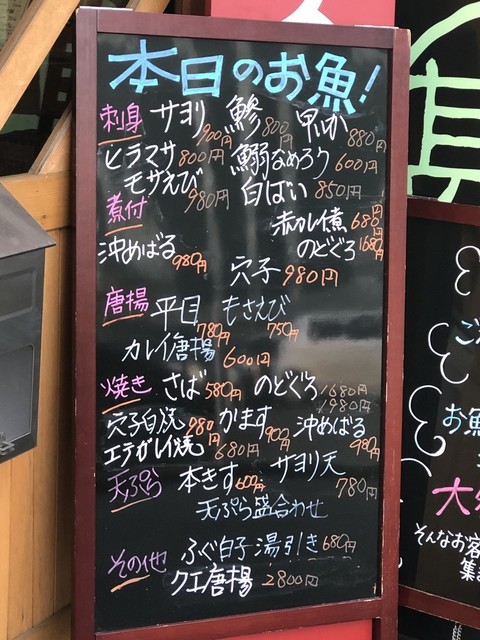 本日のお魚!
刺身 サヨリ 900円 鰺 800円 黒いか 880円
ヒラマサ 800円 鰯なめろう 600円
モサえび 980円 白ばい 850円
煮付 赤カレイ煮 680円
沖めばる 980円 のどぐろ 1680円
穴子 980円
唐揚 平目 780円 もさえび 750円
カレイ唐揚 600円
焼き さば 580円 のどぐろ 1680円
1980円
穴子白焼 980円 かます 900円 沖めばる 980円
エテガレイ焼 680円
天ぷら 本きす 600円 サヨリ天 780円
天ぷら盛合わせ
その他 ふぐ白子湯引き 680円
クエ唐揚 2800円
お魚
大
そんなお客
集